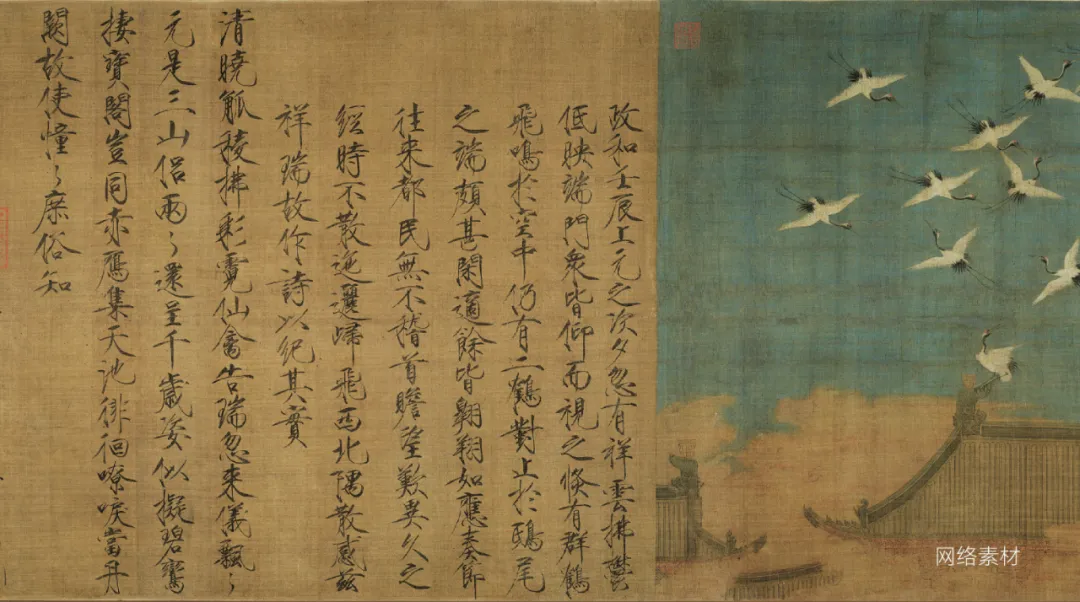 政和壬辰上元之次夕忽有祥雲拂鬱
低映端門衆皆仰而視之倏有群鶴
飛鳴於空中仍有二鶴對止於鴟尾
之端頗甚閑適餘皆翱翔如應奏節
往來都民無不稽首瞻望歎異久之
經時不散迤邐歸飛西北隅散感茲
祥瑞故作詩以紀其實
清曉觚稜拂彩霓仙禽告瑞忽來儀飄〻
元是三山侶兩〻還呈千歲姿似擬碧鸞
棲寶閣豈同赤鴈集天池徘徊嘹唳當丹
闕故使憧〻庶俗知
网络素材